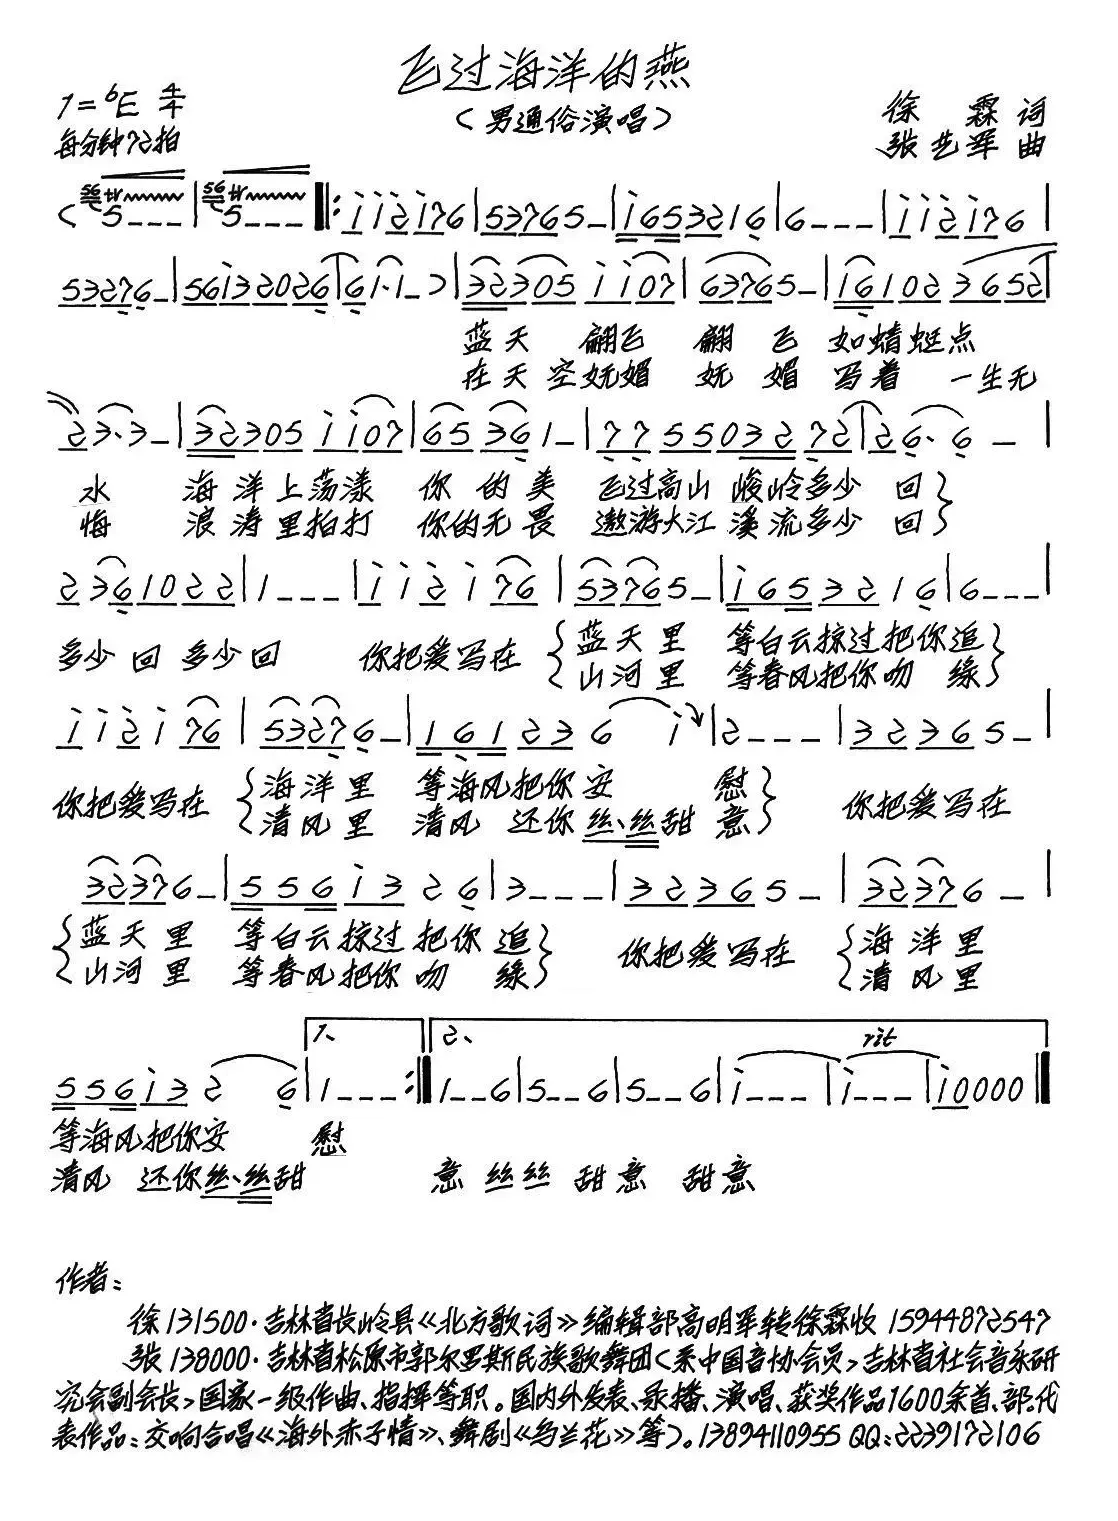 飞过海洋的燕
1=♭E 4/4
(男通俗演唱)
徐霖词
每分钟72拍
张艺军曲
(5--- | 5--- ‖: i i 2 i 7 6 | 5 3 7 6 5 - | i 6 5 3 2 1 6 | 6 - - - | i i 2 i 7 6 |
5 3 2 7 6 - | 5 6 i 3 2 0 2 6 | 6 i · i - ) | 3 2 3 0 5 i i 0 7 | 6 3 7 6 5 - | i 6 1 0 2 3 6 5 2 |
蓝天 翩飞 翩飞 如蜻蜓点
在天空妩媚 妩媚 写着 一生无
2 3 · 3 - | 3 2 3 0 5 i i 0 7 | 6 5 3 6 1 - | 7 7 5 5 0 3 2 7 2 | 2 6 · 6 - |
水 海洋上荡漾 你的美 飞过高山峻岭多少 回
悔 浪涛里拍打 你的无畏 遨游大江溪流多少 回
2 3 6 1 0 2 2 | 1 - - - | i i 2 i 7 6 | 5 3 7 6 5 - | i 6 5 3 2 1 6 | 6 - - - |
多少回 多少回 你把爱写在
蓝天里 等白云掠过把你追
山河里 等春风把你吻 缘
i i 2 i 7 6 | 5 3 2 7 6 - | 1 6 1 2 3 6 i | 2 - - - | 3 2 3 6 5 - |
你把爱写在 海洋里 等海风把你安 慰 你把爱写在
清风里 清风 还你丝、丝甜 意
3 2 3 7 6 - | 5 5 6 i 3 2 6 | 3 - - - | 3 2 3 6 5 - | 3 2 3 7 6 - |
蓝天里 等白云掠过把你 追 你把爱写在 海洋里
山河里 等春风把你 吻 缘 清风里
1、 2、 rit
5 5 6 i 3 2 6 | 1 - - - :‖ 1 - - 6 | 5 - - 6 | 5 - - 6 | i - - - | i - - - | i 0 0 0 0 ‖
等海风把你安 慰
清风 还你丝、丝甜 意 丝丝 甜意 甜意
作者:
徐131500·吉林省长岭县《北方歌词》编辑部高明军转徐霖收 15944872547
张138000·吉林省松原市郭尔罗斯民族歌舞团(系中国音协会员>吉林省社会音乐研
究会副会长>国家一级作曲、指挥等职。国内外发表、录播、演唱、获奖作品1600余首、部。代
表作品:交响合唱《海外赤子情》、舞剧《乌兰花》等)。13894110955 QQ:2239172106